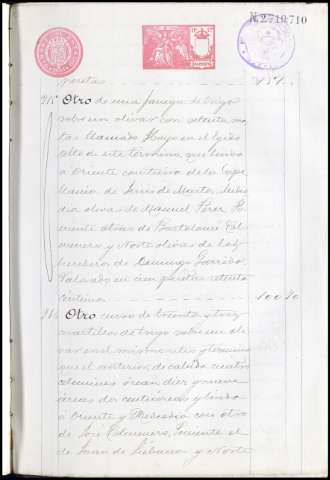 N. 2719,710
pesetas
915 Otro de una fanega de trigo
sobre un olivar con setenta ma
tas llamado Hoyo en el Ejido
alto de este término que linda
á Oriente con tierra de la Cape
llanía de Jesus de Martos, Medio
dia olivar de Manuel Perez Po
niente otros de Bartolomé Col
menero y Norte olivar de los
herederos de Domingo Garrido
Valorado en cien pesetas setenta
céntimos
100 70
916 Otro censo de treinta y tres
cuartillos de trigo sobre un oli
var en el mismo sitio y término
que el anterior, de cabida cuatro
celemines ó sean diez y nueve
áreas dos centiáreas y linda
á Oriente y Mediodia con otro
de José Colmenero, Poniente el
de Juan de Liébana y Norte